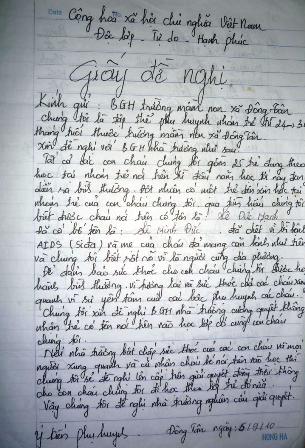 Cộng hòa xã hội chủ nghĩa Việt Nam
Độc lập - Tự do - Hạnh phúc
Giấy đề nghị
Kính gửi: BGH trường mầm non xã Đông Tân
chúng tôi là tập thể phụ huynh nhóm trẻ từ 24-36
tháng tuổi thuộc trường mầm non xã Đông Tân
Xin đề nghị với BGH nhà trường như sau:
Tất cả các con cháu chúng tôi gồm 25 trẻ đang theo
học tại nhóm trẻ nói trên từ đầu năm học tới nay
diễn ra bình thường. Đột nhiên có một trẻ đến xin học tại
nhóm trẻ của con cháu chúng tôi. qua tìm hiểu chúng tôi
biết được cháu nói trên có tên là:
Đã có bố tên là: đã chết vì bị bệnh
AIDS (Sida) và mẹ của cháu đó mang căn bệnh như trên
và chúng tôi biết rất rõ vì là người cùng địa phương.
Để đảm bảo sức khỏe cho con cháu chúng tôi được
bình thường. vì tương lai và sức khỏe của các cháu xung
quanh vì sự yên tâm của các bậc phụ huynh các cháu.
Chúng tôi xin đề nghị BGH nhà trường cương quyết không
nhận trẻ có tên nói trên vào học lớp có cùng con cháu
chúng tôi.
Nếu nhà trường bất chấp sức khỏe của các con cháu và mọi
người xung quanh và cứ nhận cháu bé nói trên vào học thì
chúng tôi sẽ đề nghị lên cấp trên giải quyết đồng thời không
cho con cháu chúng tôi đi học theo lớp trẻ đó nữa.
Vậy chúng tôi đề nghị nhà trường nghiêm cứu giải quyết.
Đông Tân ngày: 5/9/10
phụ huynh
HONG HA